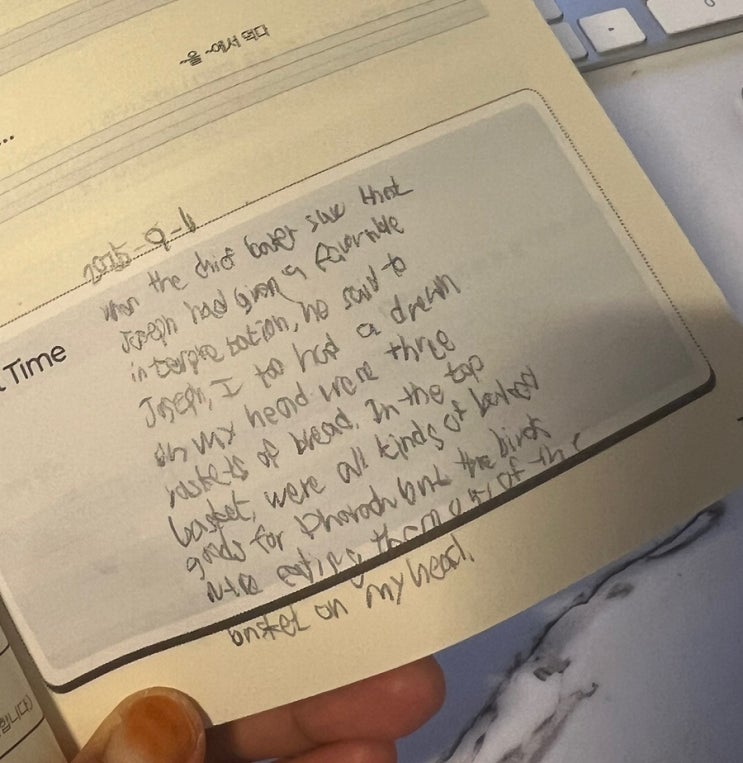 ~을 ~에서 먹다
...
Time
When the chief baker saw that
Joseph had given a favorable
interpretation, he said to
Joseph, I too had a dream
on my head were three
baskets of bread. In the top
basket, were all kinds of baked
goods for Pharaoh but the birds
were eating them out of the
basket on my head.
합니다)